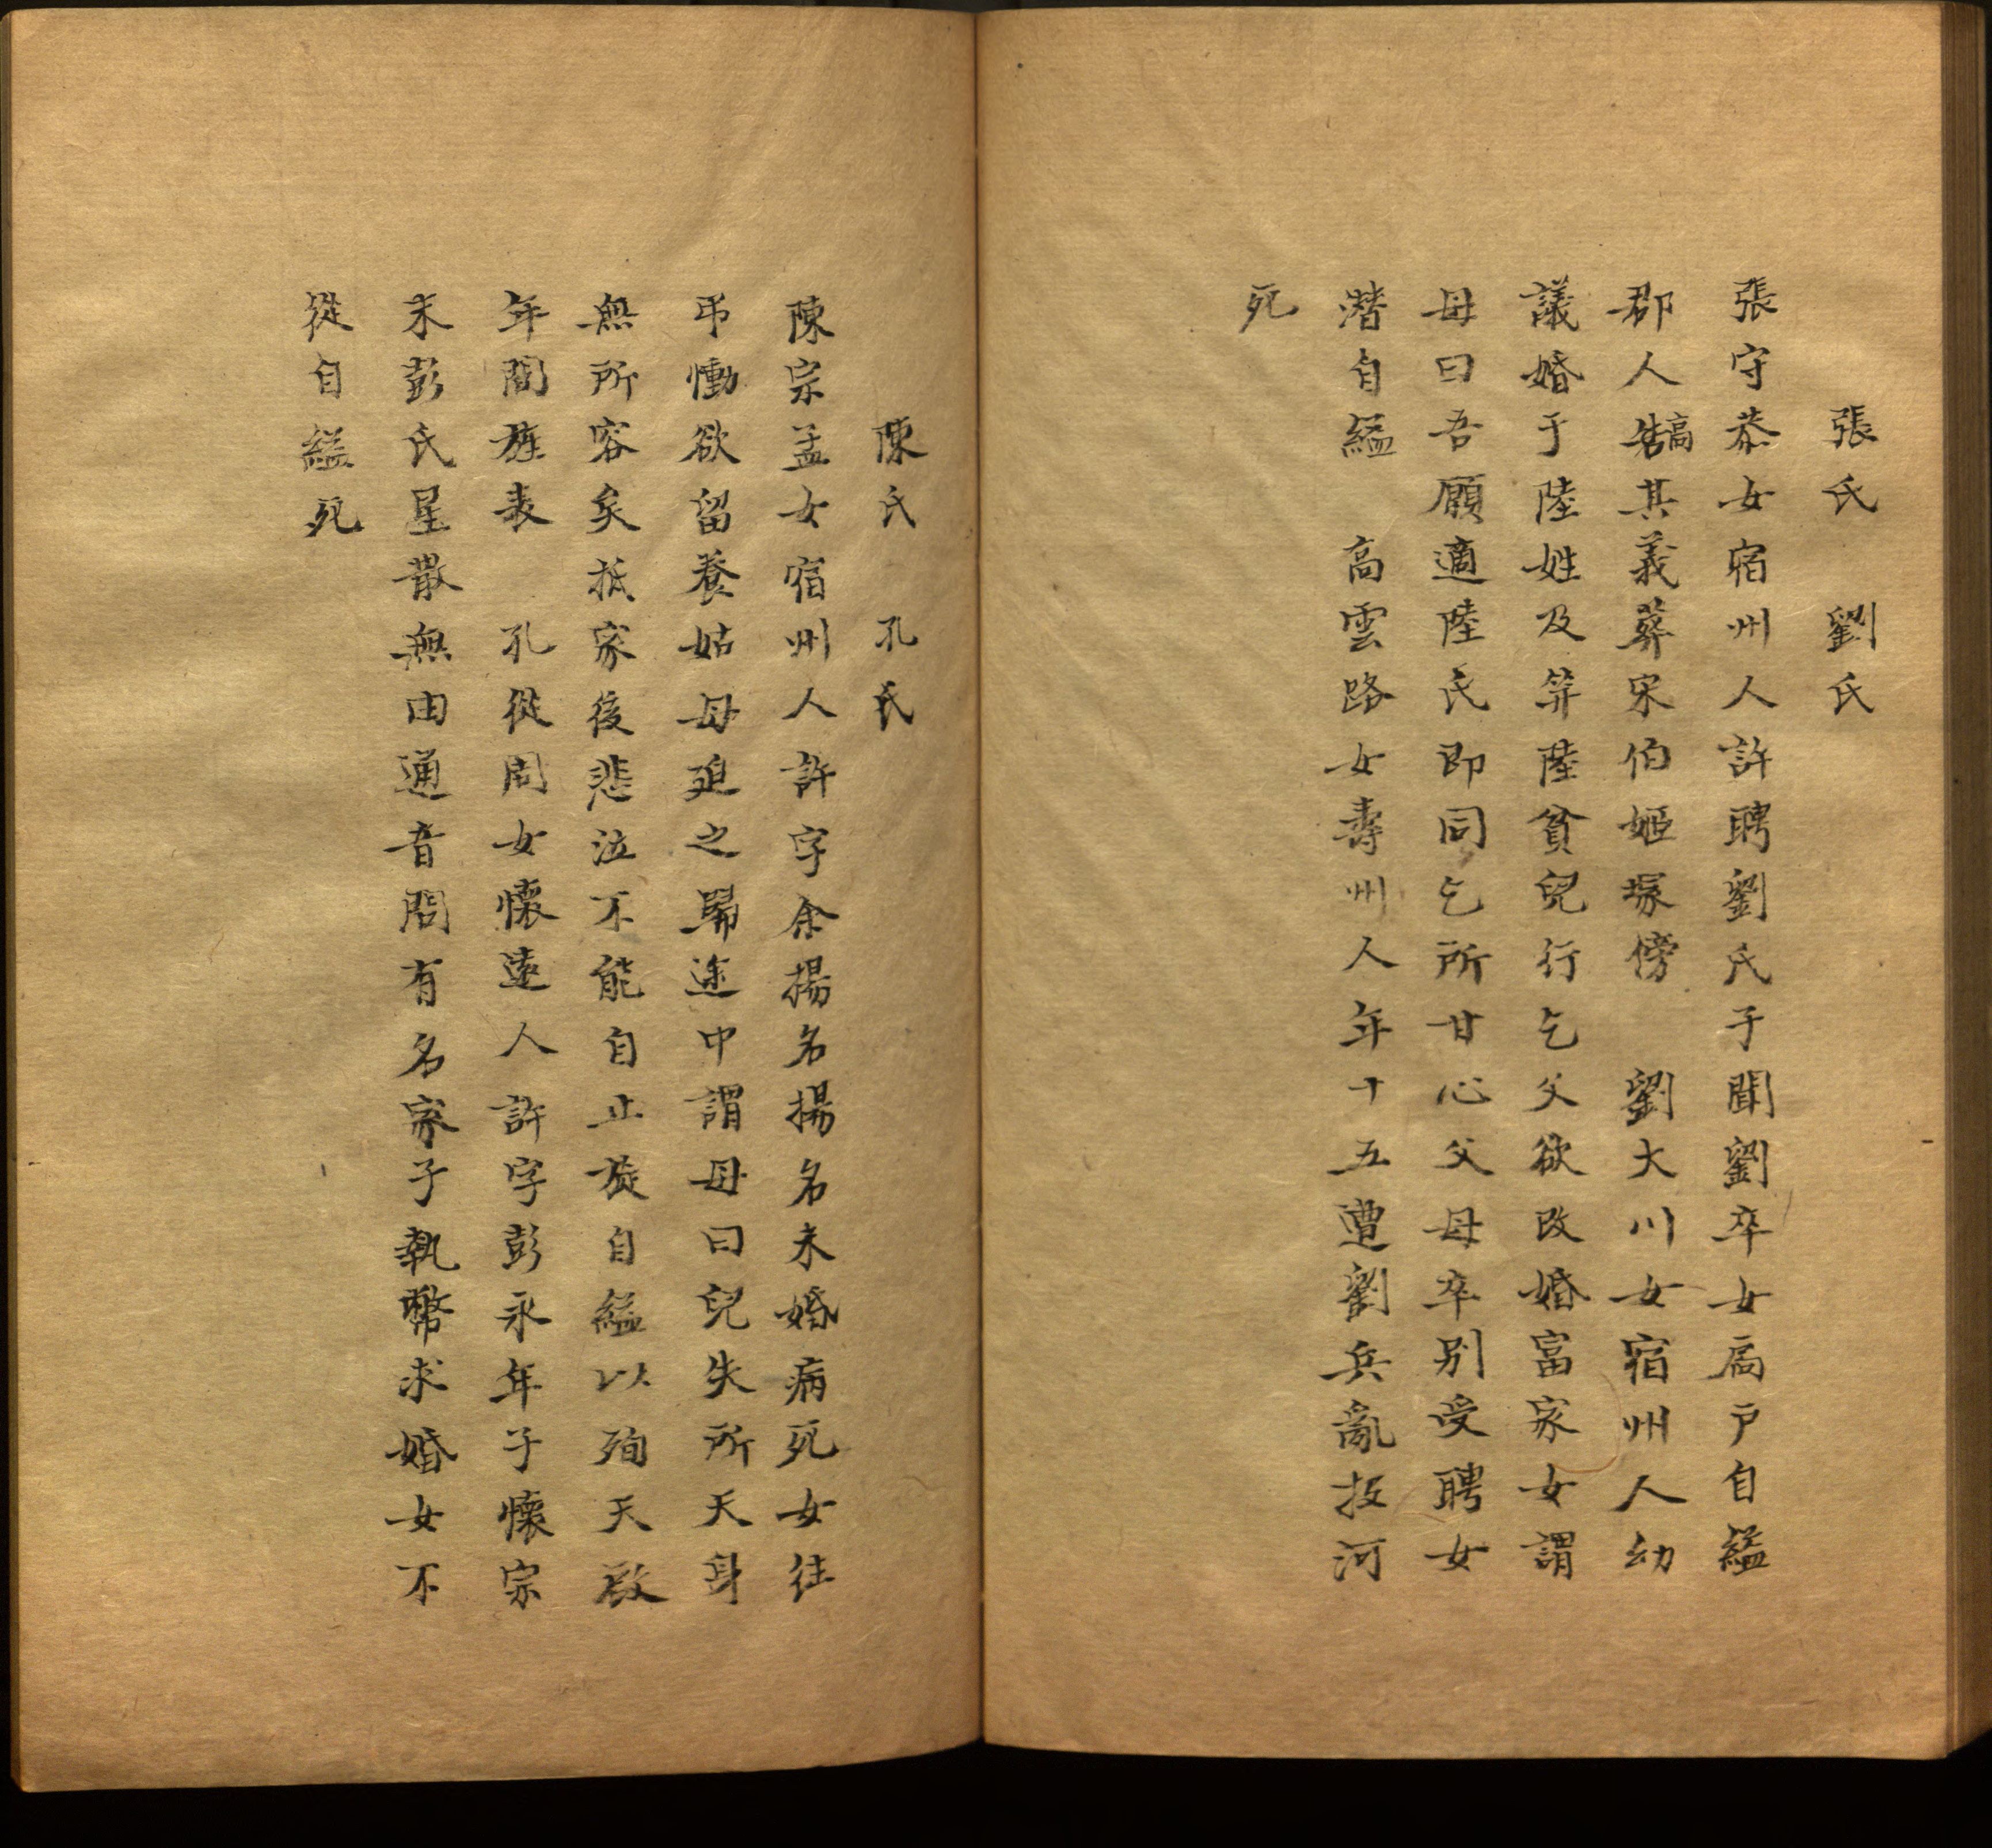 張氏　劉氏
張守恭女宿州人許聘劉氏子聞劉卒女扃戶自縊
郡人犒其義葬宋伯姬塚傍　劉大川女宿州人幼
議婚于陸姓及笄陸貧兒行乞父欲改婚富家女謂
母曰吾願適陸氏即同乞所甘心父母卒別受聘女
潛自縊　高雲路女壽州人年十五遭劉兵亂投河
死
陳氏　孔氏
陳宗孟女宿州人許字余揚名揚名未婚病死女往
弔慟欲留養姑母廹之歸途中謂母曰兒失所天身
無所容矣抵家後悲泣不能自止旋自縊以殉天啟
年間旌表　孔從周女懷遠人許字彭永年子懷宗
末彭氏星散無由通音問有名家子執幣求婚女不
從自縊死